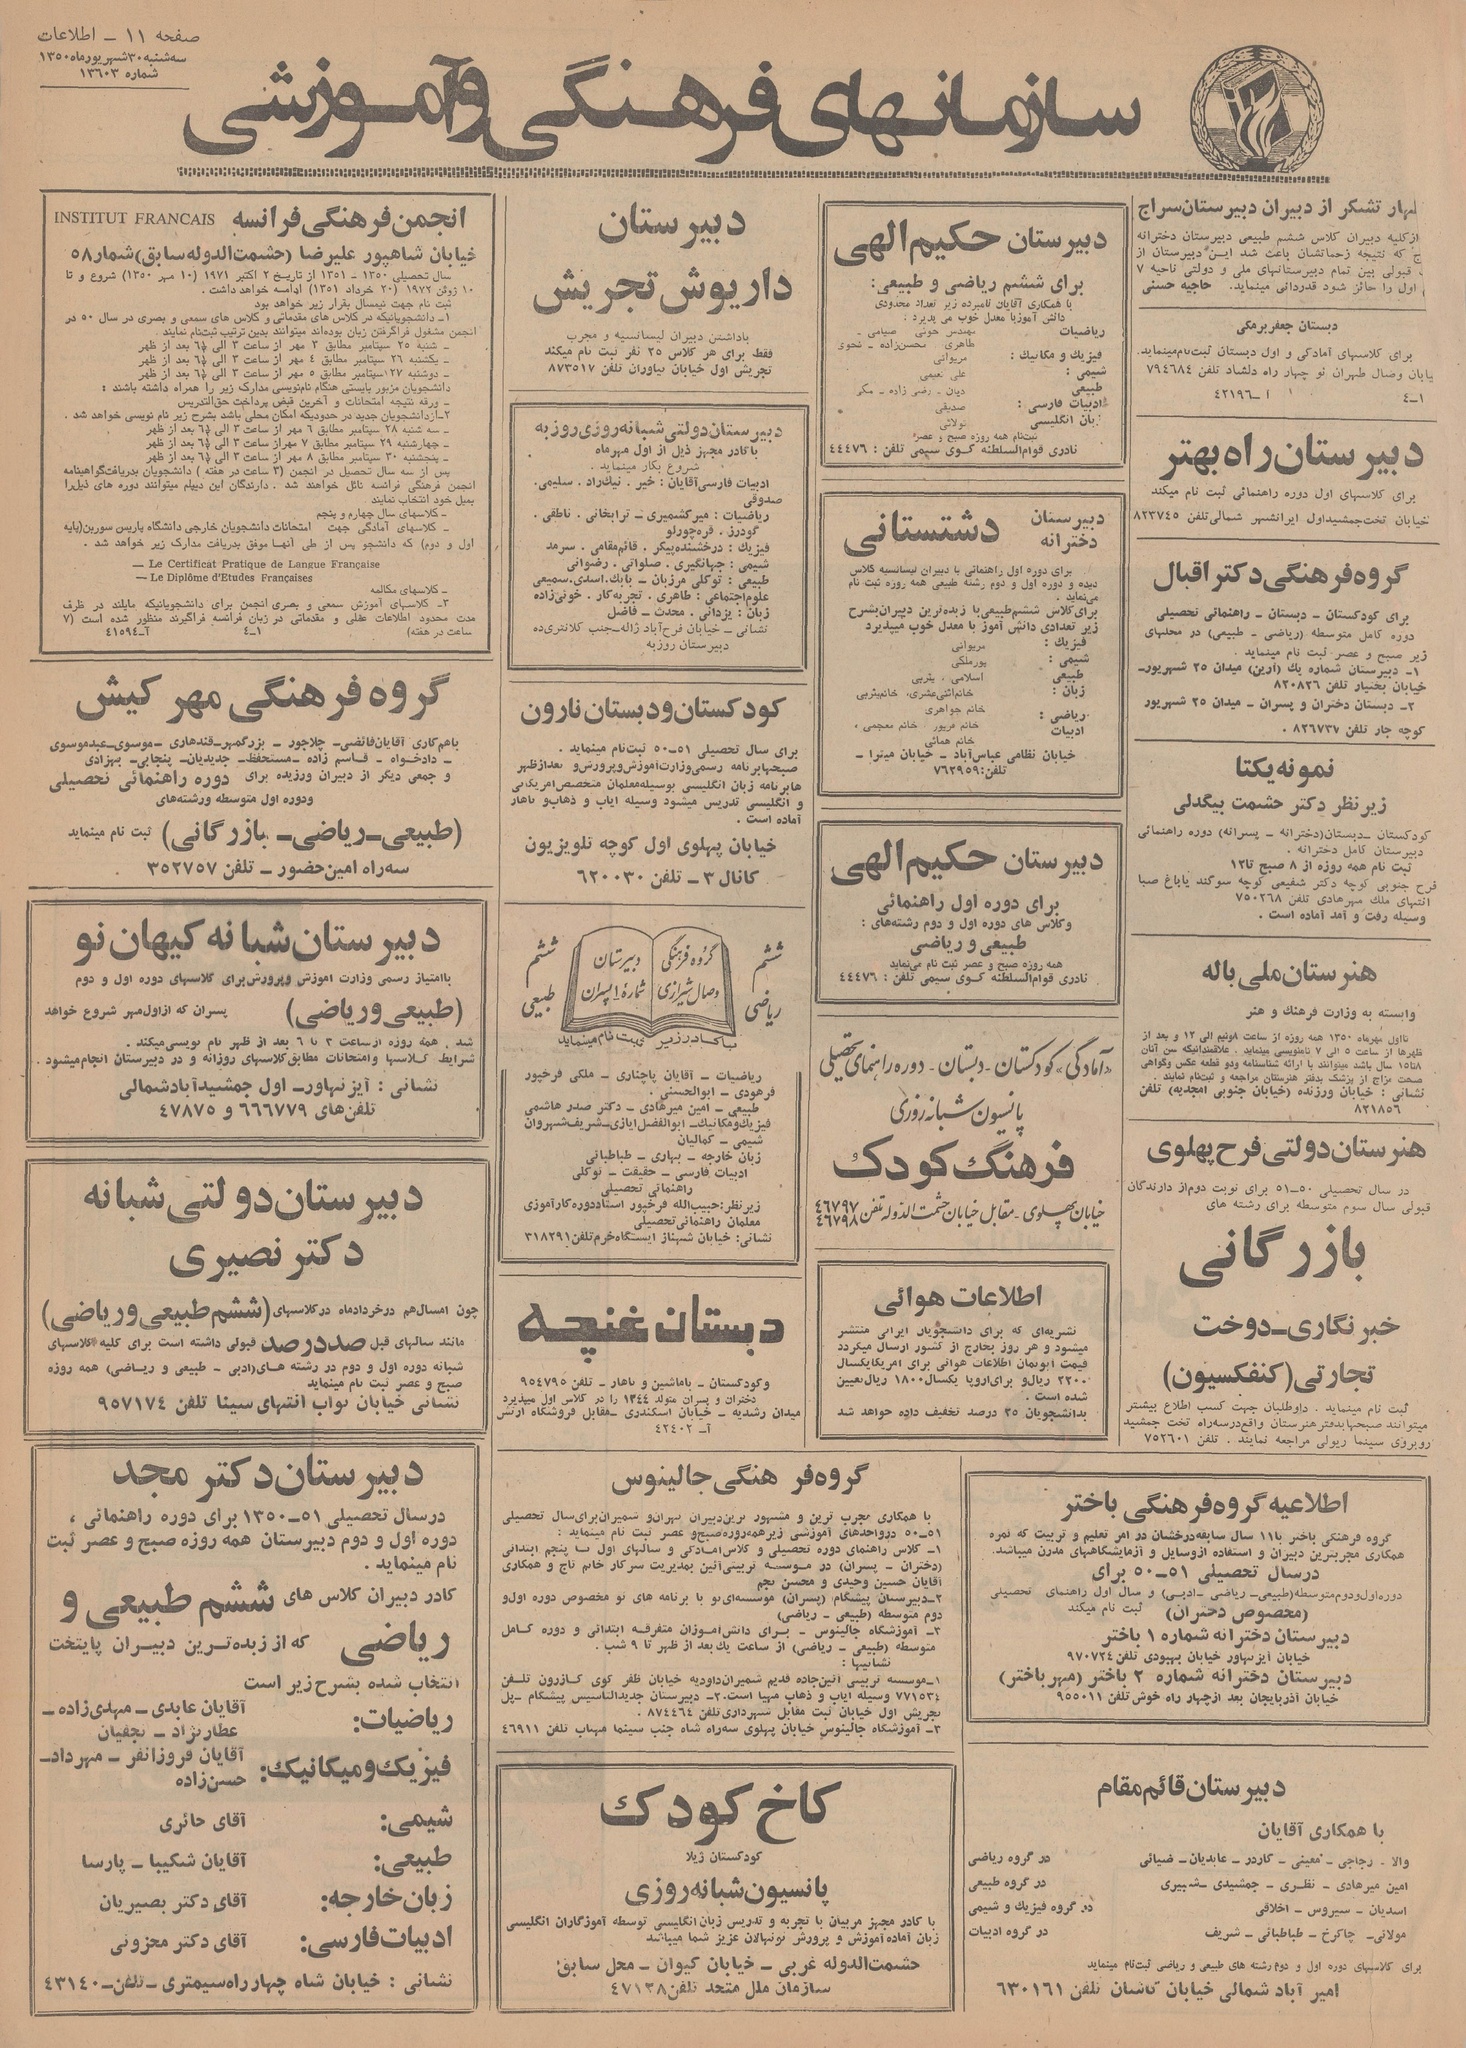 صفحه ۱۱ ـ اطلاعات
سه‌شنبه ۳۰ شهریور ماه ۱۳۵۰
شماره ۱۳۶۰۳
سازمانهای فرهنگی و آموزشی
تشکر از دبیران دبیرستان سراج
از کلیه دبیران کلاس ششم طبیعی دبیرستان دخترانه
که نتیجه زحماتشان باعث شد این دبیرستان از
قبولی بین تمام دبیرستانهای ملی و دولتی ناحیه ۷
اول را حائز شود قدردانی مینماید. حاجیه حسنی
دبستان جعفر برمکی
برای کلاسهای آمادگی و اول دبستان ثبت‌نام مینماید.
خیابان وصال طهران نو چهار راه دلشاد تلفن ۷۹۴۶۸۴
۱ـ۴ آ ـ ۴۲۱۹۶
دبیرستان راه بهتر
برای کلاسهای اول دوره راهنمائی ثبت نام میکند
خیابان تخت جمشید اول ایرانشهر شمالی تلفن ۸۲۳۷۴۵
گروه فرهنگی دکتر اقبال
برای کودکستان ـ دبستان ـ راهنمائی تحصیلی
دوره کامل متوسطه (ریاضی ـ طبیعی) در محلهای
زیر صبح و عصر ثبت نام مینماید.
۱ـ دبیرستان شماره یک (آرین) میدان ۲۵ شهریور ـ
خیابان بختیار تلفن ۸۲۰۸۲۶
۲ـ دبستان دختران و پسران ـ میدان ۲۵ شهریور
کوچه جار تلفن ۸۲۶۷۳۷ .
نمونه یکتا
زیر نظر دکتر حشمت بیگدلی
کودکستان ـ دبستان (دخترانه ـ پسرانه) دوره راهنمائی
دبیرستان کامل دخترانه .
ثبت نام همه روزه از ۸ صبح تا ۱۲
فرح جنوبی کوچه دکتر شفیعی کوچه سوگند یا باغ صبا
انتهای ملک مهرهادی تلفن ۷۵۰۲۶۸
وسیله رفت و آمد آماده است .
هنرستان ملی باله
وابسته به وزارت فرهنگ و هنر
تا اول مهرماه ۱۳۵۰ همه روزه از ساعت ۸ونیم الی ۱۲ و بعد از
ظهرها از ساعت ۵ الی ۷ نامنویسی مینماید . علاقمندانیکه سن آنان
۸تا۱۵ سال باشد میتوانند با ارائه شناسنامه ودو قطعه عکس وگواهی
صحت مزاج از پزشک بدفتر هنرستان مراجعه و ثبت‌نام نمایند .
نشانی : خیابان ورزنده (خیابان جنوبی امجدیه) تلفن
۸۲۱۸۵۶
هنرستان دولتی فرح پهلوی
در سال تحصیلی ۵۰ـ۵۱ برای نوبت دوم از دارندگان
قبولی سال سوم متوسطه برای رشته های
بازرگانی
خبرنگاری ـ دوخت
تجارتی (کنفکسیون)
ثبت نام مینماید . داوطلبان جهت کسب اطلاع بیشتر
میتوانند صبحها بدفتر هنرستان واقع درسه‌راه تخت جمشید
روبروی سینما ریولی مراجعه نمایند . تلفن ۷۵۲۶۰۱
دبیرستان حکیم الهی
برای ششم ریاضی و طبیعی:
با همکاری آقایان نامبرده زیر تعداد محدودی
دانش آموز با معدل خوب می پذیرد :
ریاضیات : مهندس خوئی صیامی ـ
طاهری ـ محسن‌زاده ـ نحوی
فیزیک و مکانیک : مریوانی
شیمی : علی نعیمی
طبیعی دیان ـ رضی زاده ـ مکر
ادبیات فارسی : صدیقی
زبان انگلیسی تولائی
ثبت‌نام همه روزه صبح و عصر
نادری قوام السلطنه کوی سیمی تلفن : ۴۴۴۷۶
دبیرستان دخترانه دشتستانی
برای دوره اول راهنمائی با دبیران لیسانسیه کلاس
دیده و دوره اول و دوم رشته طبیعی همه روزه ثبت نام
می‌نماید .
برای کلاس ششم طبیعی با زبده‌ترین دبیران بشرح
زیر تعدادی دانش آموز با معدل خوب میپذیرد
فیزیک : مریوانی
شیمی : پورملکی
طبیعی اسلامی ، یثربی
زبان : خانم اثنی‌عشری، خانم یثربی
خانم جواهری
ریاضی : خانم فریور ، خانم معجمی ،
ادبیات خانم همائی
خیابان نظامی عباس‌آباد ـ خیابان میترا ـ
تلفن: ۷۶۲۹۵۹
دبیرستان حکیم الهی
برای دوره اول راهنمائی
وکلاس های دوره اول و دوم رشته‌های :
طبیعی و ریاضی
همه روزه صبح و عصر ثبت نام می‌نماید
نادری قوام السلطنه کوی سیمی تلفن : ۴۴۴۷۶
«آمادگی» کودکستان ـ دبستان ـ دوره راهنمای تحصیلی
پانسیون شبانه روزی
فرهنگ کودک
خیابان پهلوی ـ مقابل خیابان حشمت الدوله تلفن ۴۶۷۹۷
۴۶۷۹۸
اطلاعات هوائی
نشریه‌ای که برای دانشجویان ایرانی منتشر
میشود و هر روز بخارج از کشور ارسال میگردد
قیمت آبونمان اطلاعات هوائی برای امریکا یکسال
۲۲۰۰ ریال و برای اروپا یکسال ۱۸۰۰ ریال تعیین
شده است .
بدانشجویان ۲۵ درصد تخفیف داده خواهد شد
دبیرستان
داریوش تجریش
باداشتن دبیران لیسانسیه و مجرب
فقط برای هر کلاس ۲۵ نفر ثبت نام میکند
تجریش اول خیابان نیاوران تلفن ۸۷۳۵۱۷
دبیرستان دولتی شبانه‌روزی روزبه
با کادر مجهز ذیل از اول مهرماه
شروع بکار مینماید .
ادبیات فارسی آقایان : خیر . نیک‌راد . سلیمی.
صدوقی
ریاضیات : میرکشمیری ـ ترابخانی . ناطقی .
گودرز . قره‌چورلو
فیزیک : درخشنده‌پیکر . قائم‌مقامی . سرمد
شیمی : جهانگیری . صلواتی . رضوانی
طبیعی : توکلی مرزبان ـ بابک.اسدی.سمیعی
علوم اجتماعی : طاهری . تجربه‌کار . خوئی‌زاده
زبان : یزدانی . محدث ـ فاضل
نشانی ـ خیابان فرح‌آباد ژاله ـ جنب کلانتری ده
دبیرستان روزبه
کودکستان و دبستان نارون
برای سال تحصیلی ۵۱ـ۵۰ ثبت‌نام مینماید .
صبحها برنامه رسمی وزارت آموزش و پرورش و بعدازظهر
ها برنامه زبان انگلیسی بوسیله معلمان متخصص امریکائی
و انگلیسی تدریس میشود وسیله ایاب و ذهاب و ناهار
آماده است .
خیابان پهلوی اول کوچه تلویزیون
کانال ۳ ـ تلفن ۶۲۰۰۳۰
ششم ریاضی
گروه فرهنگی وصال شیرازی
دبیرستان شماره ۱ پسران
ششم طبیعی
با کادر زیر ثبت نام مینماید
ریاضیات ـ آقایان پاچناری ـ ملکی فرخپور
فرهودی ـ ابوالحسنی .
طبیعی ـ امین میرهادی ـ دکتر صدر هاشمی
فیزیک ومکانیک ـ ابوالفضل ایازی ـ شریف شهروان
شیمی ـ کمالیان
زبان خارجه ـ بهاری ـ طباطبائی
ادبیات فارسی ـ حقیقت ـ توکلی
راهنمائی تحصیلی
زیرنظر: حبیب‌الله فرخپور استاد دوره کارآموزی
معلمان راهنمائی تحصیلی
نشانی: خیابان شهناز ایستگاه خرم تلفن ۳۱۸۲۹۱
دبستان غنچه
وکودکستان ـ باماشین و ناهار ـ تلفن ۹۵۴۷۹۵
دختران و پسران متولد ۱۳۴۴ را در کلاس اول میپذیرد
میدان رشدیه ـ خیابان اسکندری ـ مقابل فروشگاه ارتش
آـ ۴۲۴۰۲
انجمن فرهنگی فرانسه INSTITUT FRANCAIS
خیابان شاهپور علیرضا (حشمت‌الدوله سابق) شمار ۵۸
سال تحصیلی ۱۳۵۰ ـ ۱۳۵۱ از تاریخ ۲ اکتبر ۱۹۷۱ (۱۰ مهر ۱۳۵۰) شروع و تا
۱۰ ژوئن ۱۹۷۲ (۲۰ خرداد ۱۳۵۱) ادامه خواهد داشت .
ثبت نام جهت نیمسال بقرار زیر خواهد بود
۱ـ دانشجویانیکه در کلاس های مقدماتی و کلاس های سمعی و بصری در سال ۵۰ در
انجمن مشغول فراگرفتن زبان بوده‌اند میتوانند بدین ترتیب ثبت‌نام نمایند .
ـ شنبه ۲۵ سپتامبر مطابق ۳ مهر از ساعت ۳ الی ۶½ بعد از ظهر
ـ یکشنبه ۲۶ سپتامبر مطابق ۴ مهر از ساعت ۳ الی ۶½ بعد از ظهر
ـ دوشنبه ۲۷ سپتامبر مطابق ۵ مهر از ساعت ۳ الی ۶½ بعد از ظهر
دانشجویان مزبور بایستی هنگام نام‌نویسی مدارک زیر را همراه داشته باشند :
ـ ورقه نتیجه امتحانات و آخرین قبض پرداخت حق‌التدریس
۲ـ از دانشجویان جدید در حدودیکه امکان محلی باشد بشرح زیر نام نویسی خواهد شد .
ـ سه شنبه ۲۸ سپتامبر مطابق ۶ مهر از ساعت ۳ الی ۶½ بعد از ظهر
ـ چهارشنبه ۲۹ سپتامبر مطابق ۷ مهر از ساعت ۳ الی ۶½ بعد از ظهر
ـ پنجشنبه ۳۰ سپتامبر مطابق ۸ مهر از ساعت ۳ الی ۶½ بعد از ظهر
پس از سه سال تحصیل در انجمن (۳ ساعت در هفته ) دانشجویان بدریافت گواهینامه
انجمن فرهنگی فرانسه نائل خواهند شد . دارندگان این دیپلم میتوانند دوره های ذیل را
بمیل خود انتخاب نمایند
ـ کلاسهای سال چهارم و پنجم
ـ کلاسهای آمادگی جهت امتحانات دانشجویان خارجی دانشگاه پاریس سوربن (پایه
اول و دوم) که دانشجو پس از طی آنها موفق بدریافت مدارک زیر خواهد شد .
— Le Certificat Pratique de Langue Française
— Le Diplôme d'Etudes Françaises
ـ کلاسهای مکالمه
۳ـ کلاسهای آموزش سمعی و بصری انجمن برای دانشجویانیکه مایلند در ظرف
مدت محدود اطلاعات عقلی و مقدماتی در زبان فرانسه فراگیرند منظور شده است (۷
ساعت در هفته) ۱ـ۴ آـ۴۱۵۹۴
گروه فرهنگی مهر کیش
باهمکاری آقایان فائضی ـ چلاجور ـ بزرگمهر ـ قندهاری ـ موسوی ـ عبدموسوی
ـ دادخواه ـ قاسم زاده ـ مستحفظ ـ جدیدیان ـ پنجابی ـ بهزادی
و جمعی دیگر از دبیران ورزیده برای دوره راهنمائی تحصیلی
ودوره اول متوسطه ورشته‌های
(طبیعی ـ ریاضی ـ بازرگانی) ثبت نام مینماید
سه راه امین حضور ـ تلفن ۳۵۲۷۵۷
دبیرستان شبانه کیهان نو
باامتیاز رسمی وزارت آموزش و پرورش برای کلاسهای دوره اول و دوم
(طبیعی و ریاضی) پسران که از اول مهر شروع خواهد
شد ، همه روزه از ساعت ۲ تا ۶ بعد از ظهر نام نویسی میکند .
شرایط کلاسها و امتحانات مطابق کلاسهای روزانه و در دبیرستان انجام میشود .
نشانی : آیزنهاور ـ اول جمشید آباد شمالی
تلفن‌های ۶۶۶۷۷۹ و ۴۷۸۷۵
دبیرستان دولتی شبانه
دکتر نصیری
چون امسال هم در خردادماه در کلاسهای (ششم طبیعی و ریاضی)
مانند سالهای قبل صد در صد قبولی داشته است برای کلیه کلاسهای
شبانه دوره اول و دوم در رشته های (ادبی ـ طبیعی و ریاضی) همه روزه
صبح و عصر ثبت نام مینماید
نشانی خیابان نواب انتهای سینا تلفن ۹۵۷۱۷۴
دبیرستان دکتر مجد
درسال تحصیلی ۵۱ـ۱۳۵۰ برای دوره راهنمائی ،
دوره اول و دوم دبیرستان همه روزه صبح و عصر ثبت
نام مینماید .
کادر دبیران کلاس های ششم طبیعی و
ریاضی که از زبده‌ترین دبیران پایتخت
انتخاب شده بشرح زیر است
ریاضیات: آقایان عابدی ـ مهدی‌زاده ـ
عطارنژاد ـ نجفیان
فیزیک و میکانیک: آقایان فروزانفر ـ مهرداد ـ
حسن‌زاده
شیمی: آقای حائری
طبیعی: آقایان شکیبا ـ پارسا
زبان خارجه: آقای دکتر بصیریان
ادبیات فارسی: آقای دکتر محزونی
نشانی : خیابان شاه چهار راه سیمتری ـ تلفن ـ ۴۳۱۴۰
گروه فرهنگی جالینوس
با همکاری مجرب ترین و مشهور ترین دبیران تهران و شمیران برای سال تحصیلی
۵۱ـ۵۰ در واحدهای آموزشی زیر همه روزه صبح و عصر ثبت نام مینماید :
۱ـ کلاس راهنمای دوره تحصیلی و کلاس آمادگی و سالهای اول تا پنجم ابتدائی
(دختران ـ پسران) در موسسه تربیتی آئین بمدیریت سرکار خانم تاج و همکاری
آقایان حسین وحیدی و محسن نجم
۲ـ دبیرستان پیشگام (پسران) موسسه‌ای نو با برنامه های نو مخصوص دوره اول و
دوم متوسطه (طبیعی ـ ریاضی)
۳ـ آموزشگاه جالینوس ـ برای دانش‌آموزان متفرقه ابتدائی و دوره کامل
متوسطه (طبیعی ـ ریاضی) از ساعت یک بعد از ظهر تا ۹ شب .
نشانیها :
۱ـ موسسه تربیتی آئین جاده قدیم شمیران داودیه خیابان ظفر کوی کازرون تلفن
۷۷۱۵۳۴ وسیله ایاب و ذهاب مهیا است. ۲ـ دبیرستان جدیدالتاسیس پیشگام ـ پل
تجریش اول خیابان ثبت مقابل شهرداری تلفن ۸۷۴۴۶۴ .
۳ـ آموزشگاه جالینوس خیابان پهلوی سه‌راه شاه جنب سینما مهتاب تلفن ۴۶۹۱۱
کاخ کودک
کودکستان ژیلا
پانسیون شبانه روزی
با کادر مجهز مربیان با تجربه و تدریس زبان انگلیسی توسط آموزگاران انگلیسی
زبان آماده آموزش و پرورش نونهالان عزیز شما میباشد
حشمت‌الدوله غربی ـ خیابان کیوان ـ محل سابق:
سازمان ملل متحد تلفن ۴۷۱۳۸
اطلاعیه گروه فرهنگی باختر
گروه فرهنگی باختر با ۱۱ سال سابقه درخشان در امر تعلیم و تربیت که ثمره
همکاری مجربترین دبیران و استفاده از وسایل و آزمایشگاههای مدرن میباشد.
درسال تحصیلی ۵۱ـ۵۰ برای
دوره اول و دوم متوسطه (طبیعی ـ ریاضی ـ ادبی) و سال اول راهنمای تحصیلی
(مخصوص دختران) ثبت نام میکند
دبیرستان دخترانه شماره ۱ باختر
خیابان آیزنهاور خیابان بهبودی تلفن ۹۷۰۷۲۴
دبیرستان دخترانه شماره ۲ باختر (مهر باختر)
خیابان آذربایجان بعد از چهار راه خوش تلفن ۹۵۵۰۱۱
دبیرستان قائم مقام
با همکاری آقایان
والا ـ رجاجی ـ معینی ـ کاردر ـ عابدیان ـ ضیائی در گروه ریاضی
امین میرهادی ـ نظری ـ جمشیدی ـ شبیری در گروه طبیعی
اسدیان ـ سیروس ـ اخلاقی در گروه فیزیک و شیمی
مولائی ـ چاکرخ ـ طباطبائی ـ شریف در گروه ادبیات
برای کلاسهای دوره اول و دوم رشته های طبیعی و ریاضی ثبت‌نام مینماید
امیر آباد شمالی خیابان کاشان تلفن ۶۳۰۱۶۱